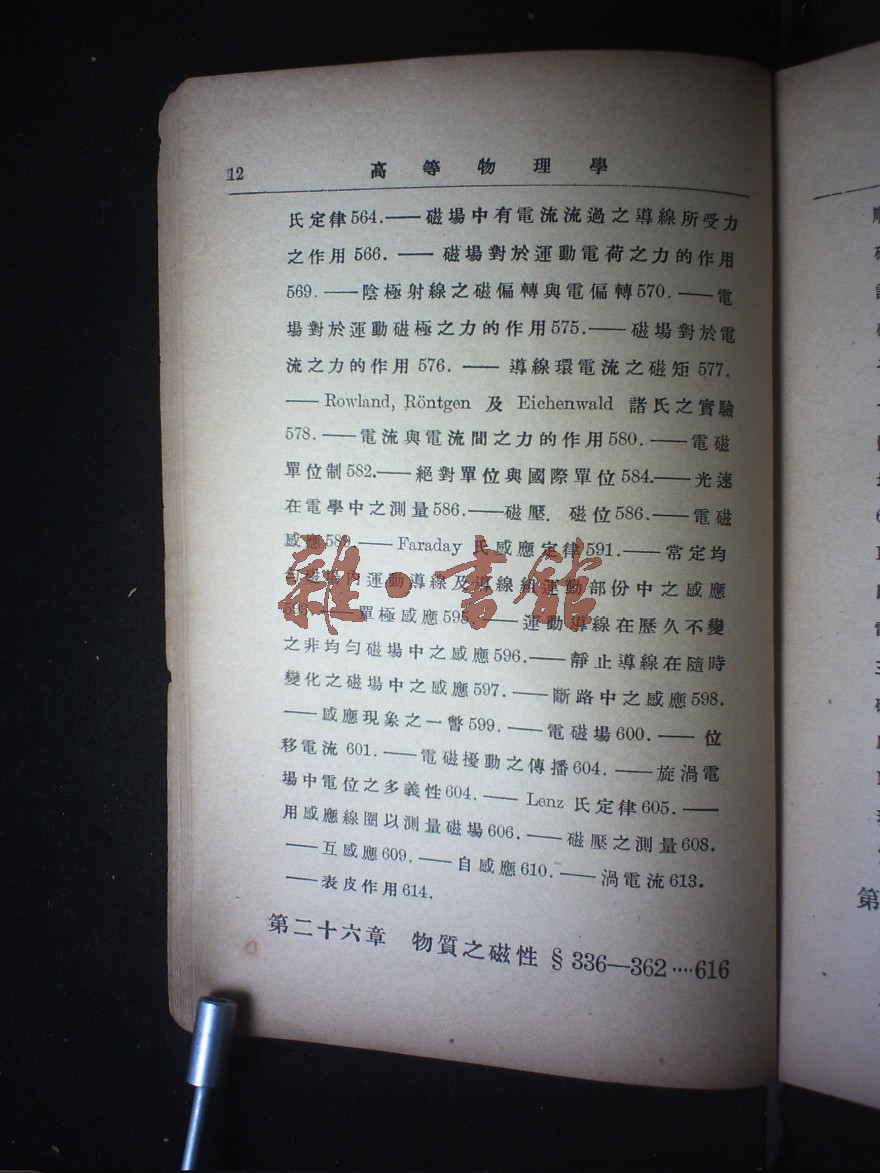 12
高等物理學
氏定律564.——磁場中有電流流過之導線所受力
之作用566.——磁場對於運動電荷之力的作用
569.——陰極射線之磁偏轉與電偏轉570.——電
場對於運動磁極之力的作用575.——磁場對於電
流之力的作用576.——導線環電流之磁矩577.
——Rowland, Röntgen 及 Eichenwald 諸氏之實驗
578.——電流與電流間之力的作用580.——電磁
單位制582.——絕對單位與國際單位584.——光速
在電學中之測量586.——磁壓. 磁位586.——電磁
感應589.——Faraday 氏感應定律591.——常定均
勻磁場內運動導線及導線組運動部份中之感應
593.——單極感應595.——運動導線在歷久不變
之非均勻磁場中之感應596.——靜止導線在隨時
變化之磁場中之感應597.——斷路中之感應598.
——感應現象之一瞥599.——電磁場600.——位
移電流601.——電磁擾動之傳播604.——旋渦電
場中電位之多義性604.——Lenz 氏定律605.——
用感應線圈以測量磁場606.——磁壓之測量608.
——互感應609.——自感應610.——渦電流613.
——表皮作用614.
第二十六章 物質之磁性 § 336—362····616
雜·書館
第